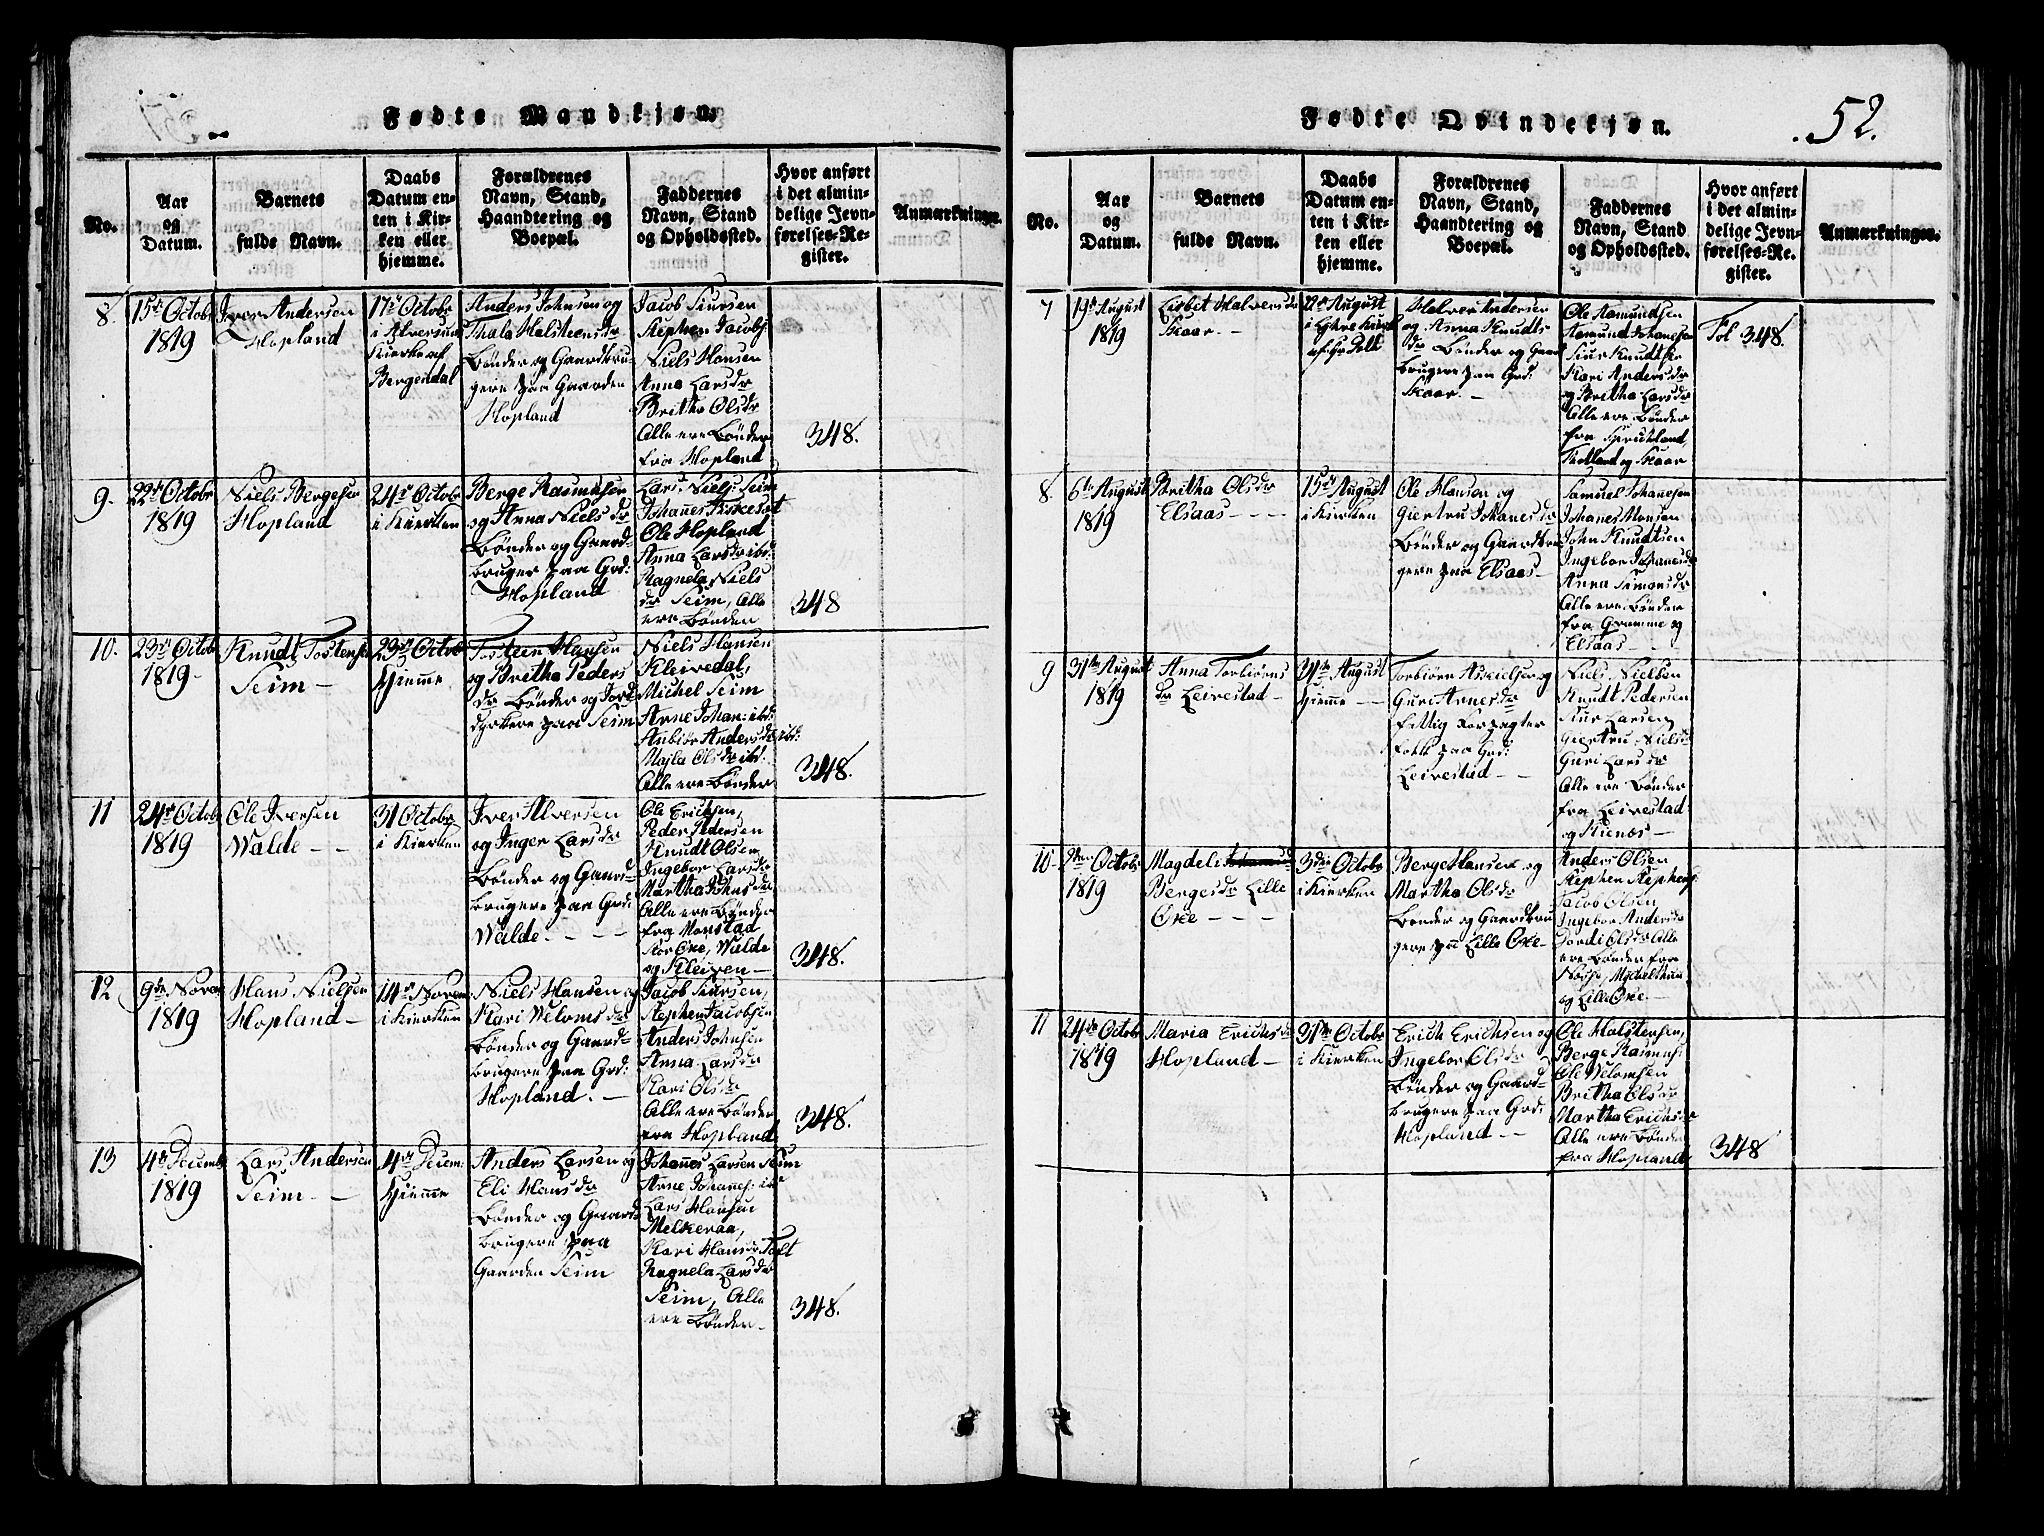 Fødte Mandkjøn.
No.
Aar
og
Datum.
Barnets
fulde Navn.
Daabs
Datum en-
ten i Kir-
ken eller
hjemme.
Forældrenes
Navn, Stand,
Haandtering og
Boepæl.
Faddernes
Navn, Stand
og Opholdssted.
Hvor anført
i det almin-
delige Jevn-
førelses-Re-
gister.
Anmærkninger.
8.
15de Octobr
1819
Iver Andersen
Hopland
17de Octobr
i Alversund
Kierke af
Bergendal
Anders Johnsen og
Thala Halsteensdr
Bønder og Gaardbru
gere paa Gaarden
Hopland
Jacob Siursen
Stephen Jacobs:
Niels Hansen
Anna Larsdr
Britha Olsdr
Alle ere Bønder
fra Hopland
348.
9.
22de Octobr
1819
Niels Bergesen
Hopland
24de Octobr
i Kierken
Berge Rasmusen
og Anna Nielsdr
Bønder og Gaard-
bruger paa Grd:
Hopland
Lars Niels: Seim
Johanes
Ole Hopland
Anna Larsdr ibd:
Ragnela Niels
dr Seim, Alle
ere Bønder
348
10.
23de Octobr
1819.
Knudt Tostensen
Seim
23de Octobr
Hjemme
Tosteen Hansen
og Britha Peders
dr Bønder og Jord
dyrkere paa Seim
Niels Hansen
Kleivedal,
Michel Seim
Arne Johan: ibd:
Anbiør Andersdr ibd:
Majla Olsdr ibd:
Alle ere Bønder
348.
11
24de Octobr
1819
Ole Iversen
Walde
31 Octobr
i Kierken
Iver Alversen
og Inger Larsdr
Bønder og Gaard-
brugere paa Grd:
Walde
Ole Erichsen,
Peder Pedersen
Knudt Olsen,
Ingebor Larsdr
Martha Johnsdr
Alle ere Bønder
fra Monstad
Stor Oxe, Walde
og Kleiven
348.
12
9de Novem
1819
Hans Nielsen
Hopland
14de Novem
i Kierken
Niels Hansen og
Kari Welomsdr
Bønder og Gaard-
brugere paa Grd:
Hopland.
Jacob Siursen,
Stephen Jacobsen
Anders Johnsen
Anna Larsdr
Kari Olsdr
Alle ere Bønder
fra Hopland
348.
13
4de Decemb
1819
Lars Andersen
Seim
4de Decem
Hjemme
Anders Larsen og
Eli Hansdr
Bønder og Gaard-
brugere paa
Gaarden Seim
Johannes Larsen Seim
Arne Johanes:
Lars Hansen
Melkeraa,
Kari Hansdr
Ragnela Larsdr
Seim, Alle
ere Bønder
348.
Fødte Qvindekjøn.
52.
No.
Aar
og
Datum.
Barnets
fulde Navn.
Daabs
Datum en-
ten i Kir-
ken eller
hjemme.
Forældrenes
Navn, Stand,
Haandtering og
Boepæl.
Faddernes
Navn, Stand
og Opholdssted.
Hvor anført
i det almin-
delige Jevn-
førelses-Re-
gister.
Anmærkninger.
7
19de August
1819
Lisbet Halversdr
Skaar.
22de August
Halver Andersen
og Anna Knudts
dr Bønder og Gaard
brugere paa Grd:
Skaar.
Ole Aamundsen
Aamund Johanesen
Siur Knudtsen
Kari Andersdr
og Britha Larsdr
Alle ere Bønder
fra
og Skaar
Fol 348.
8.
6te August
1819
Britha Olsdr
Elsaas
15de August
i Kierken
Ole Hansen og
Giertru Johanesdr
Bønder og Gaardbru
gere paa Elsaas
Samuel Johanesen
Johanes Monsen
John Knudtsen
Ingebor Johanesdr
Anna Simonsdr
Alle ere Bønder
fra Gramme og
Elsaas
9
31te August
1819
Anna Torbiørns
dr Leirestad
31te August
Hjemme
Torbiørn Askielsen og
Guri Arnesdr
fattig
Folk paa Grd:
Leirestad
Niels Nielsen
Knudt Pedersen
Siur Larsen,
Giertru Nielsdr
Guri Larsdr
Alle ere Bønder
fra Leirestad
og
10.
2den Octobr
1819
Magdeli
Bergesdr Lille
Oxe
3die Octobr
i Kierken
Berge Hansen og
Martha Olsdr
Bønder og Gaardbru
gere paa Lille Oxe
Anders Olsen
Stephen Stephens:
Jacob Olsen
Ingebor Andersdr
Jordi Olsdr Alle
ere Bønder fra
og Lille Oxe
11
24de Octobr
1819
Maria Erichsdr
Hopland
31te Octobr
i Kierken
Erich Erichsen og
Ingebor Olsdr
Bønder og Gaard-
brugere paa Grd:
Hopland
Ole Halstensen,
Berge Rasmus:
Ole Welomsen
Britha Olsdr
Martha Erichsdr
Alle ere Bønder
fra Hopland
348